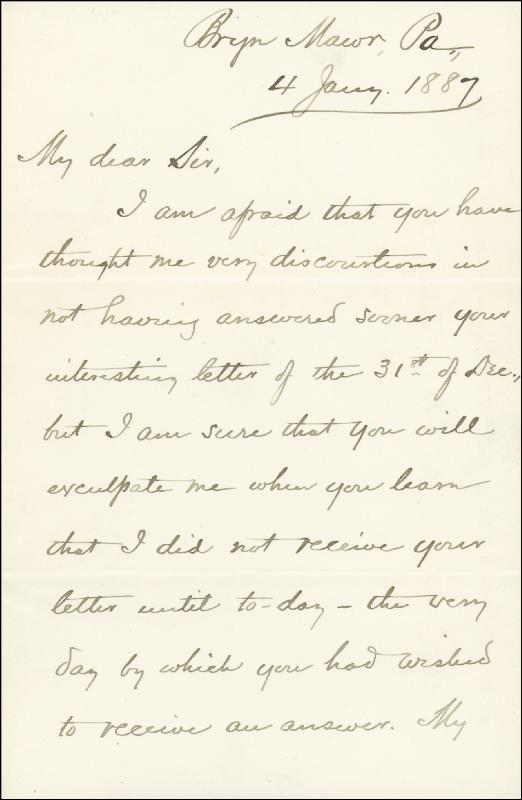 Bryn Mawr, Pa.,
4 Jany. 1887
My dear Sir,
I am afraid that you have
thought me very discourteous in
not having answered sooner your
interesting letter of the 31st of Dec.,
but I am sure that you will
exculpate me when you learn
that I did not receive your
letter until to-day – the very
day by which you had wished
to receive an answer. My